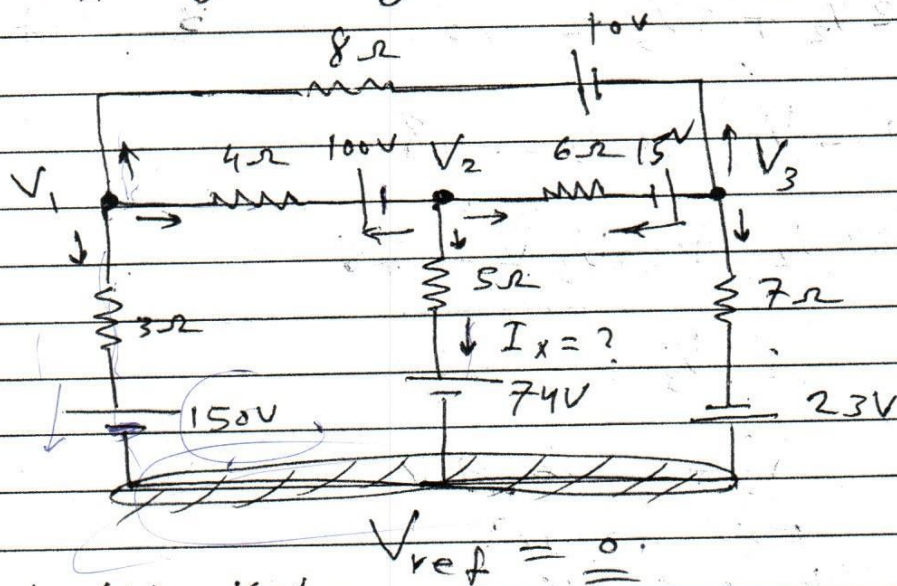 8Ω 10V
V₁ 4Ω 100V V₂ 6Ω 15V V₃
3Ω 5Ω 7Ω
Iₓ = ?
150V 74V 23V
V_ref = 0.